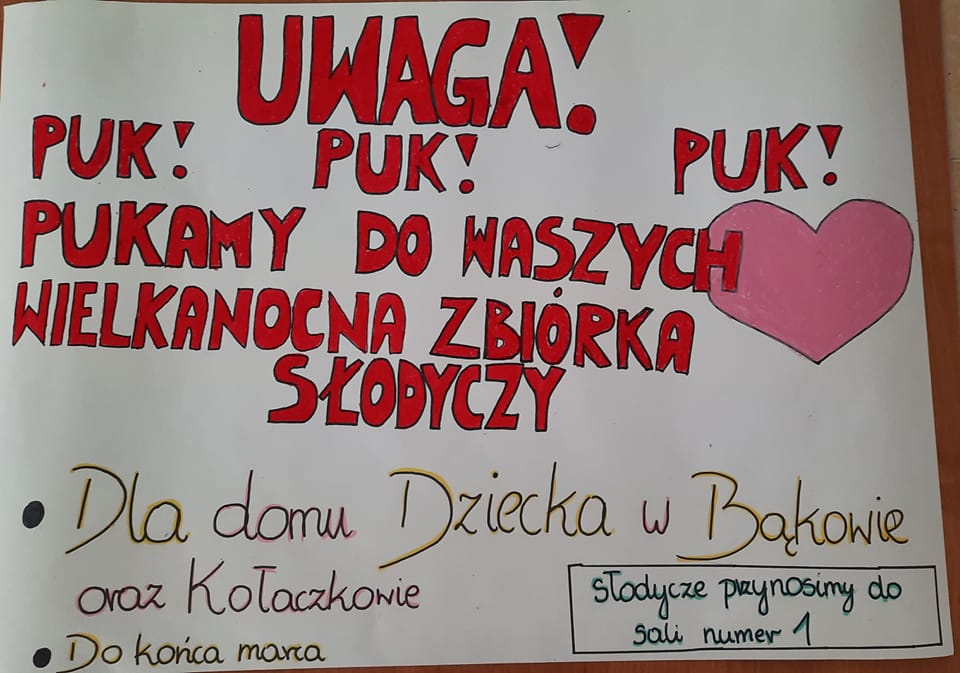 UWAGA!
PUK! PUK! PUK!
PUKAMY DO WASZYCH
WIELKANOCNA ZBIÓRKA
SŁODYCZY
• Dla domu Dziecka w Bąkowie
oraz Kołaczkowie
• Do końca marca
słodycze przynosimy do
sali numer 1